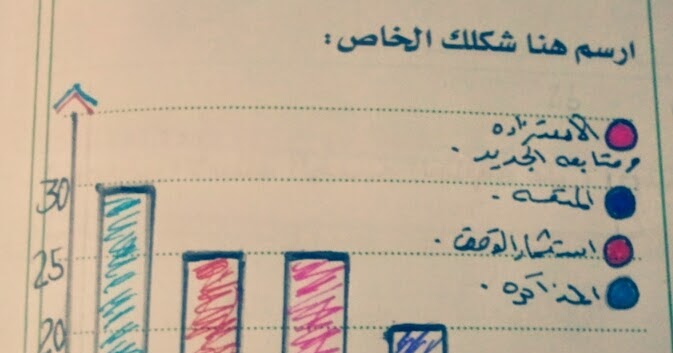 ارسم هنا شكلك الخاص:
الاستزاده
ومتابعه الجديد .
المتعه .
استثمار الوقت .
المذاكره .
30
25
20